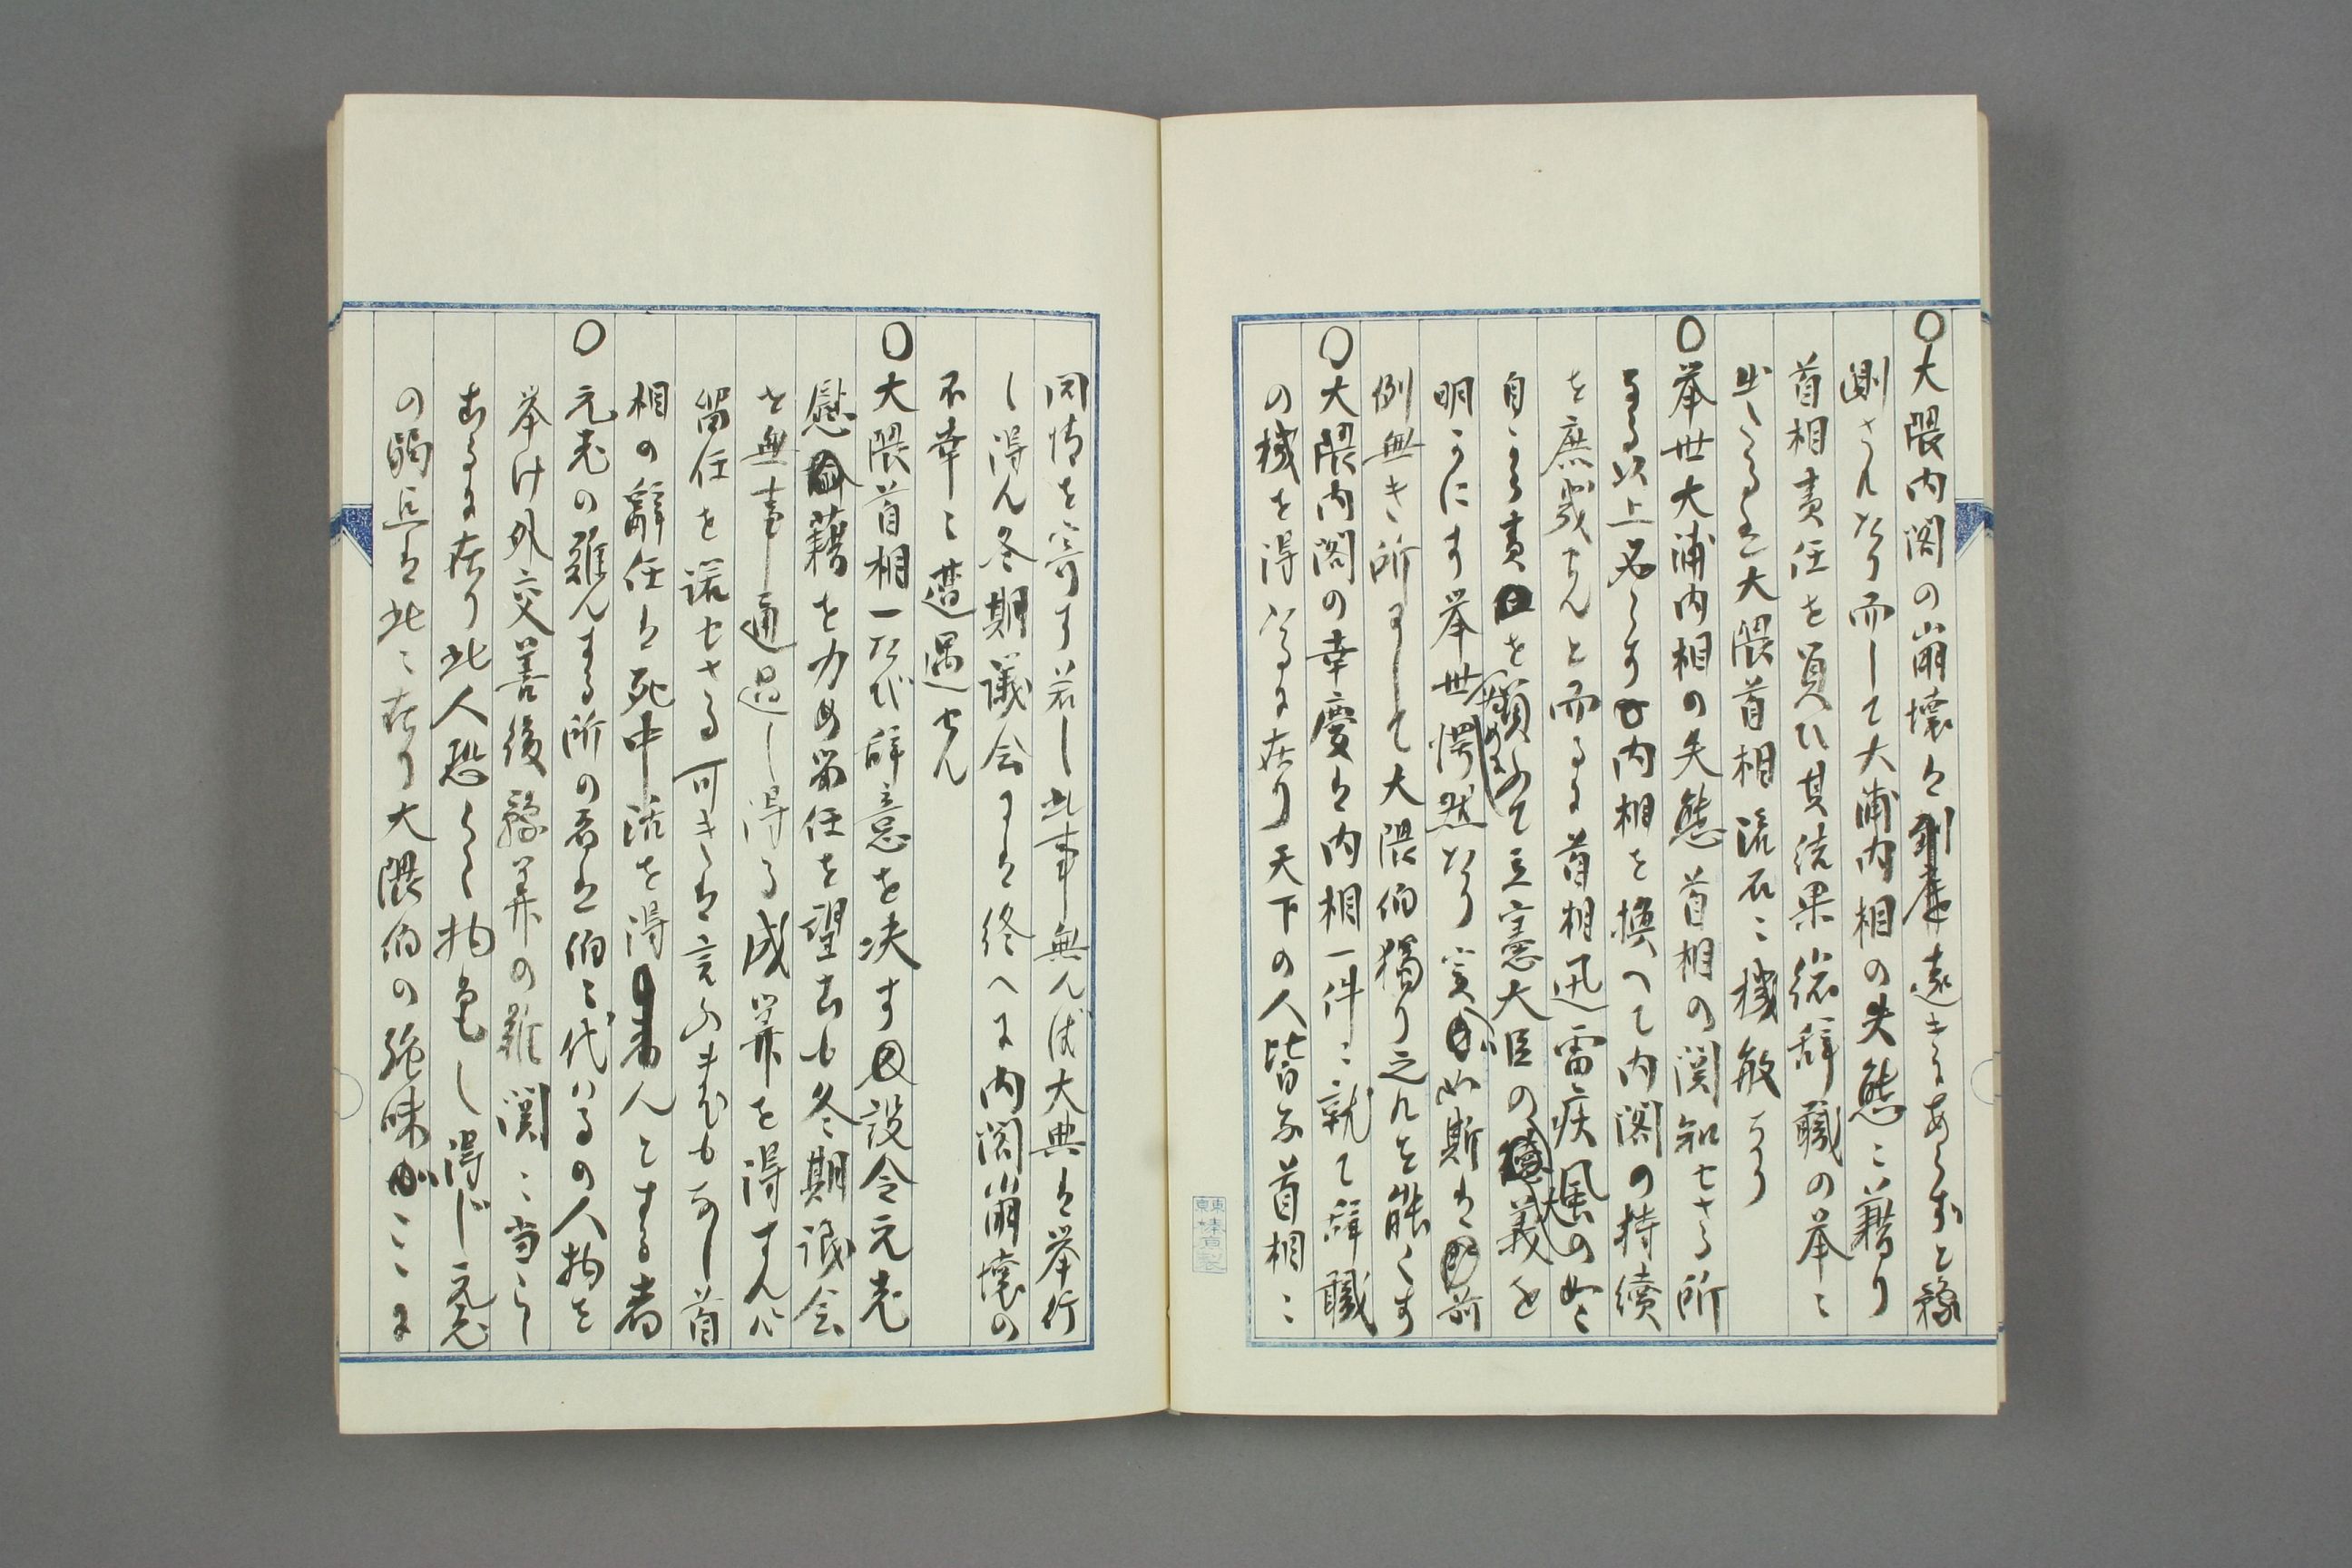 〇大隈内閣の崩壊は遠きにあらずと豫
測されたり而して大浦内相の失態に藉り
首相責任を負ひ其結果総辞職の挙に
出でたるは大隈首相流石に機敏なり
〇挙世大浦内相の失態首相の関知せさる所
なる以上恐らくは内相を換へて内閣の持続
を庶幾せんと而るに首相迅雷疾風の如く
自から責を引て立憲大臣の大義を
明かにす挙世愕然たり実に如斯は前
例無き所にして大隈伯独り之れを能くす
〇大隈内閣の幸慶は内相一件に就て辞職
の機を得たるに在り天下の人皆な首相に
同情を寄す若し此事無んば大典は挙行
し得ん冬期議会には終へに内閣崩壊の
不幸に遭遇せん
〇大隈首相一たび辞意を決す設令元老
慰藉を力め留任を望むも冬期議会
を無事通過し得る成算を得すんば
留任を諾せさる可きは言ふまでもなし首
相の辞任は死中活を得んとする者
〇元老の難んする所の者は伯に代はるの人物を
挙け外交善後豫算の難関に当らし
むるに在り此人恐らく物色し得じ元老
の弱点は此に在り大隈伯の強味もここに